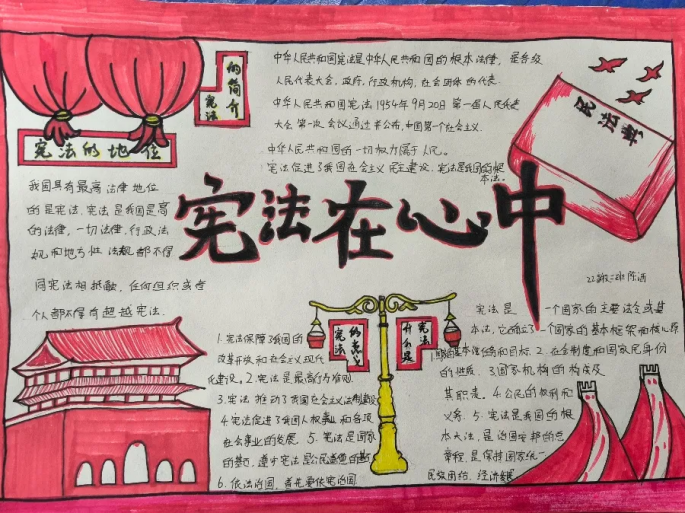 宪法的简介
中华人民共和国宪法是中华人民共和国的根本法律,是各级
人民代表大会,政府,行政机构,社会团体的代表.
中华人民共和国宪法1954年9月20日第一届人民
大会第一次会议通过并公布,中国第一个社会主义.
中华人民共和国的一切权力属于人民。
宪法促进了我国社会主义民主建设.宪法是我国的根
本法。
民法典
宪法的地位
我国具有最高法律地位
的是宪法.宪法是我国最高
的法律,一切法律,行政法
规和地方性法规都不得
同宪法相抵触,任何组织或者
个人都不得有超越宪法.
宪法在心中
宪法的意义
1.宪法保障了我国的
改革开放和社会主义现代
化建设。2.宪法是最高行为准则.
3.宪法推动了我国社会主义法制建设
4.宪法促进了我国人权事业和各项
社会事业的发展.5.宪法是国家
的基石,遵守宪法是公民道德的
6.依法治国,首先要依宪治国
什么是宪法
宪法是一个国家的主要法令或基
本法,它确立了一个国家的基本框架和核心原
任务和目标.2.社会制度和国家民身份
的性质.3.国家机构的构成及
其职责。4.公民的权利和
义务.5.宪法是我国的根
本大法,是治国安邦的总
章程,是保持国家统一
民族团结、经济发展